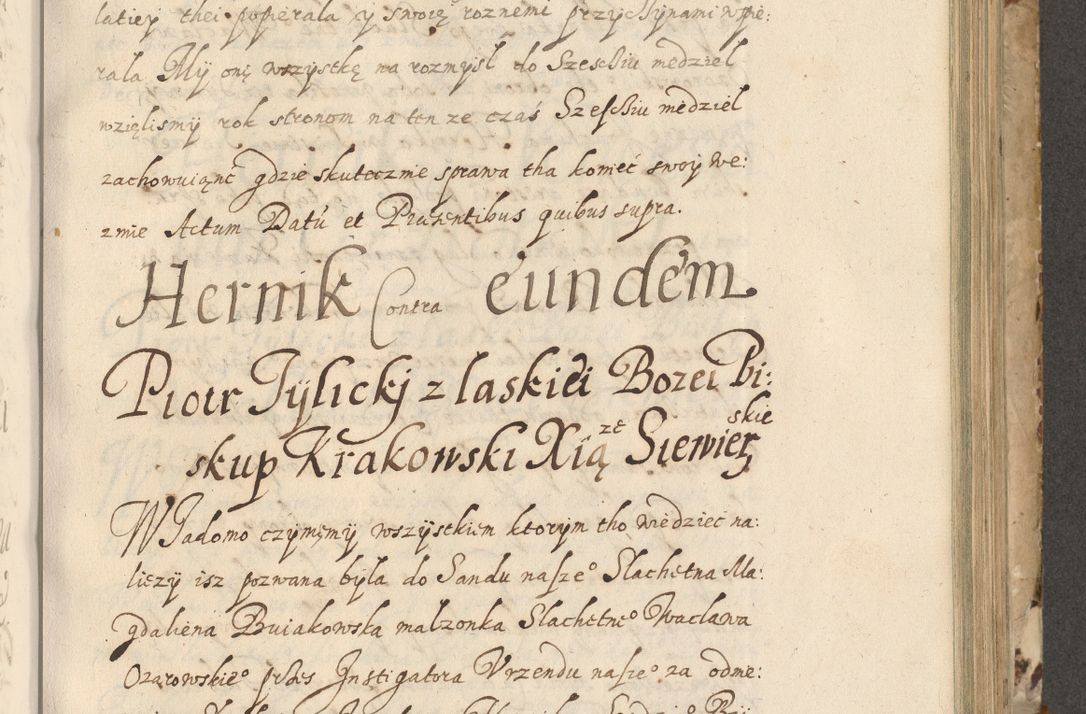 latiey thei popierala y swoię roznemi przyczynami wpie:
rala My onę wszystkę na rozmysl do Szescziu niedziel
wzięlismy rok stronom na ten ze czas Szescziu niedziel
zachowuiąnc gdzie skutecznie sprawa tha koniec swoy we:
zmie Actum Datu et Praesentibus quibus supra.
Hernik Contra eundem
Piotr Tylicki z laskiei Bozei Bi:
skup Krakowski Xiąze Siewierskie
Wiadomo czynięmy wszystkiem ktorym tho wiedziec na:
liezy isz pozwana była do Sandu nasze° Slachetna Ma:
gdaliena Buiakowska malzonka Slachetne° Waclawa
Ozarowskie° przes Instigatora Vrzendu nasze° za odnie: